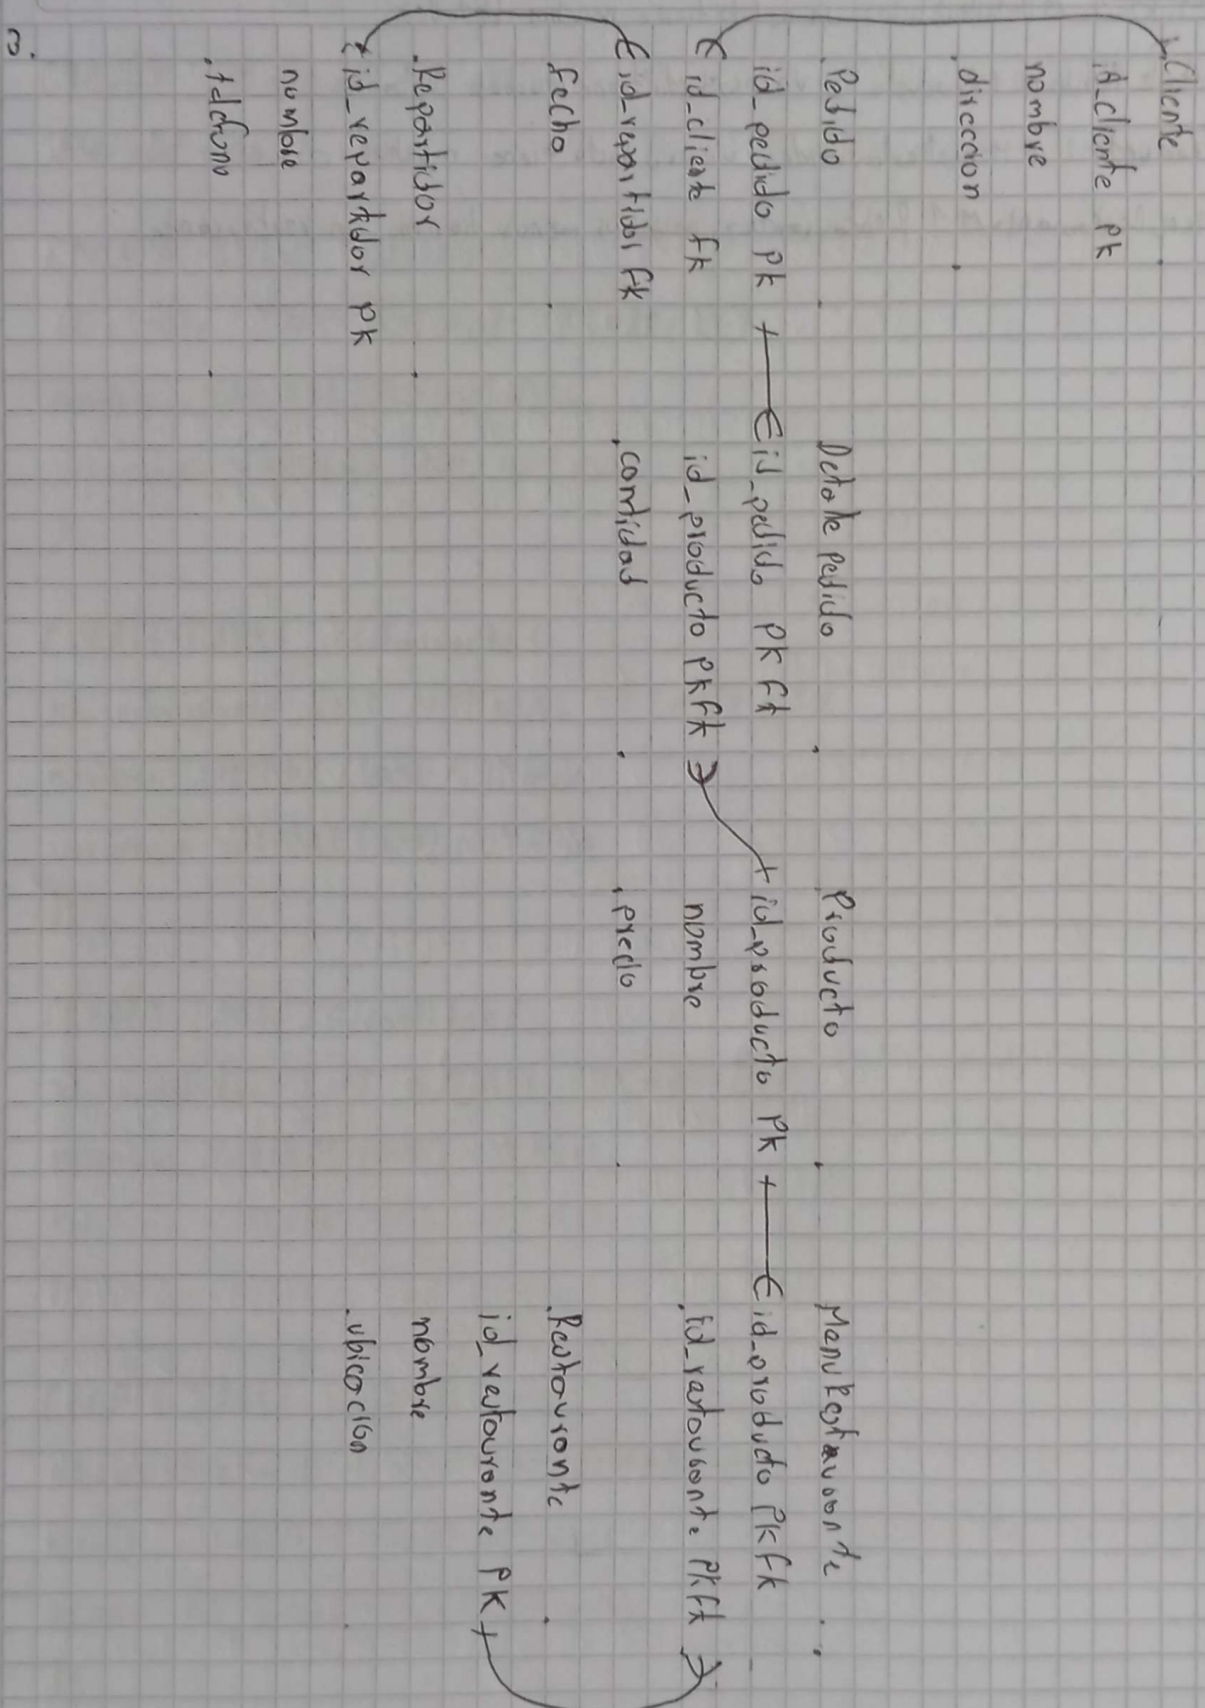 Cliente
id_cliente pk
nombre
direccion
Pedido
id_pedido pk
id_cliente fk
id_repartidor fk
fecha
Repartidor
id_repartidor pk
nombre
telefono
Detalle pedido
id_pedido pk fk
id_producto pk fk
cantidad
Producto
id_producto pk
nombre
precio
Menu Restaurante
id_producto pk fk
id_restaurante pk fk
Restaurante
id_restaurante pk
nombre
ubicacion
3.